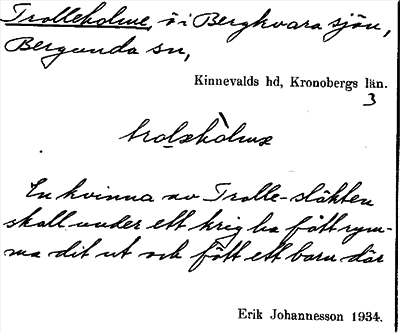 Trolleholme, ö i Bergkvara sjön,
Bergunda sn,
Kinnevalds hd, Kronobergs län.
3
En kvinna av Trolle-släkten
skall under ett krig ha fått rym-
ma dit ut och fött ett barn där
Erik Johannesson 1934.